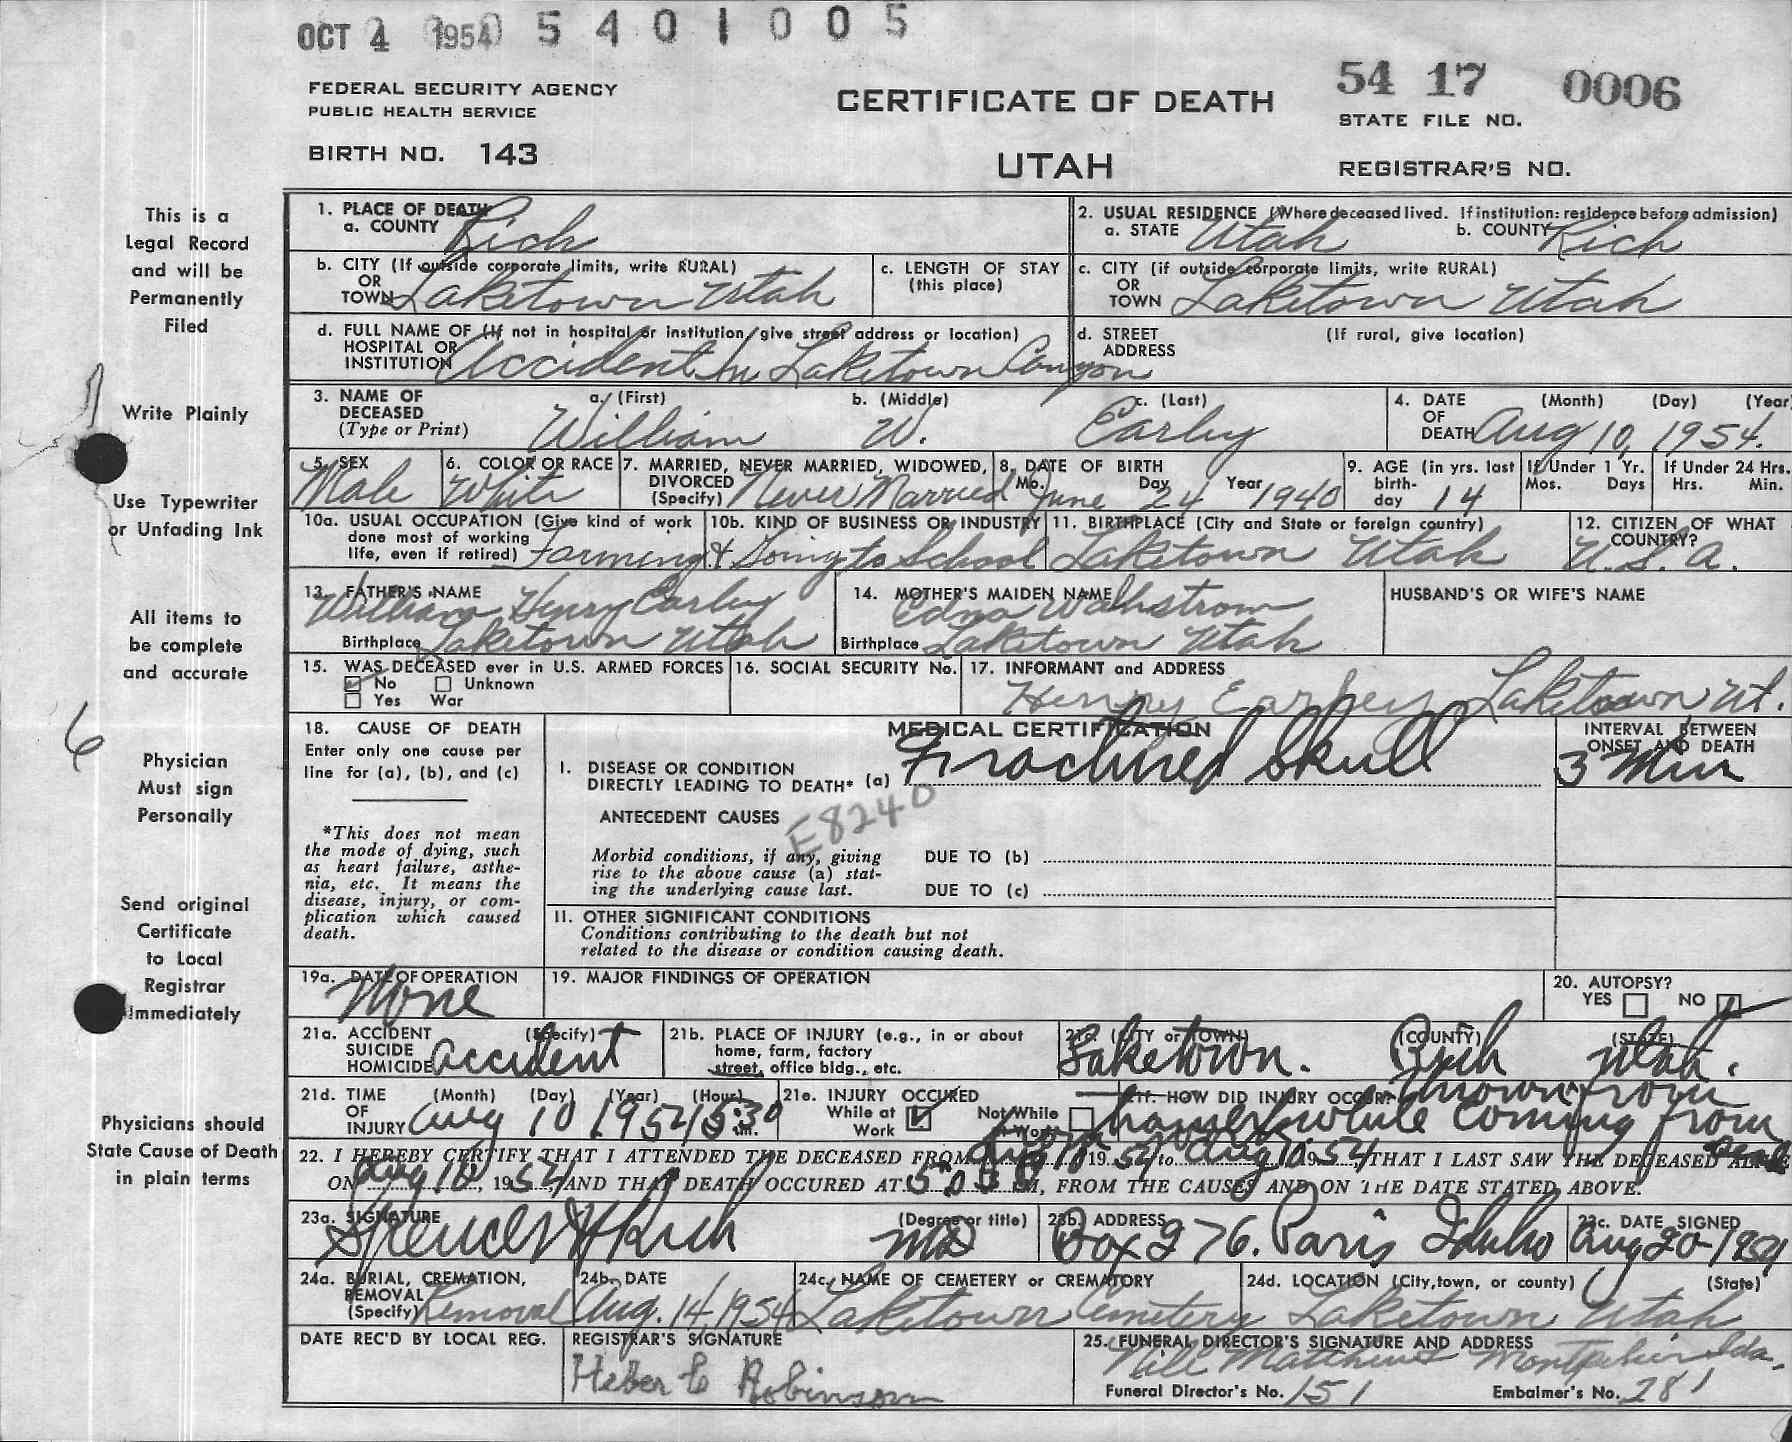 OCT 4 1954 5 4 0 1 0 0 5
FEDERAL SECURITY AGENCY
PUBLIC HEALTH SERVICE
BIRTH NO. 143
CERTIFICATE OF DEATH
UTAH
54 17 0006
STATE FILE NO.
REGISTRAR'S NO.
This is a
Legal Record
and will be
Permanently
Filed
Write Plainly
Use Typewriter
or Unfading Ink
All items to
be complete
and accurate
6
Physician
Must sign
Personally
Send original
Certificate
to Local
Registrar
Immediately
Physicians should
State Cause of Death
in plain terms
1. PLACE OF DEATH
a. COUNTY Rich
2. USUAL RESIDENCE (Where deceased lived. If institution: residence before admission)
a. STATE Utah b. COUNTY Rich
b. CITY (If outside corporate limits, write RURAL)
OR
TOWN Laketown Utah
c. LENGTH OF STAY
(this place)
c. CITY (if outside corporate limits, write RURAL)
OR
TOWN Laketown Utah
d. FULL NAME OF (If not in hospital or institution, give street address or location)
HOSPITAL OR
INSTITUTION Accident In Laketown Canyon
d. STREET (If rural, give location)
ADDRESS
3. NAME OF DECEASED
(Type or Print)
a. (First) b. (Middle) c. (Last)
William W. Earley
4. DATE (Month) (Day) (Year)
OF
DEATH Aug 10, 1954.
5. SEX
Male
6. COLOR OR RACE
White
7. MARRIED, NEVER MARRIED, WIDOWED,
DIVORCED
(Specify) Never Married
8. DATE OF BIRTH
Mo. Day Year
June 24 1940
9. AGE (in yrs. last
birth-
day 14
If Under 1 Yr.
Mos. Days
If Under 24 Hrs.
Hrs. Min.
10a. USUAL OCCUPATION (Give kind of work
done most of working
life, even if retired) Farming &
10b. KIND OF BUSINESS OR INDUSTRY
Going to School
11. BIRTHPLACE (City and State or foreign country)
Laketown Utah
12. CITIZEN OF WHAT
COUNTRY?
U.S.A.
13. FATHER'S NAME
William Henry Earley
Birthplace Laketown Utah
14. MOTHER'S MAIDEN NAME
Edna Wahlstrom
Birthplace Laketown Utah
HUSBAND'S OR WIFE'S NAME
15. WAS DECEASED ever in U.S. ARMED FORCES
No Unknown
Yes War
16. SOCIAL SECURITY No.
17. INFORMANT and ADDRESS
Henry Earley Laketown Ut.
18. CAUSE OF DEATH
Enter only one cause per
line for (a), (b), and (c)
*This does not mean
the mode of dying, such
as heart failure, asthe-
nia, etc. It means the
disease, injury, or com-
plication which caused
death.
MEDICAL CERTIFICATION
I. DISEASE OR CONDITION
DIRECTLY LEADING TO DEATH* (a) Fractured Skull
INTERVAL BETWEEN
ONSET AND DEATH
3 Min
E8240
ANTECEDENT CAUSES
Morbid conditions, if any, giving
rise to the above cause (a) stat-
ing the underlying cause last.
DUE TO (b)
DUE TO (c)
II. OTHER SIGNIFICANT CONDITIONS
Conditions contributing to the death but not
related to the disease or condition causing death.
19a. DATE OF OPERATION
None
19. MAJOR FINDINGS OF OPERATION
20. AUTOPSY?
YES NO
21a. ACCIDENT (Specify)
SUICIDE
HOMICIDE accident
21b. PLACE OF INJURY (e.g., in or about
home, farm, factory
street, office bldg., etc.
21c. (CITY or TOWN) (COUNTY) (STATE)
Laketown. Rich Utah.
21d. TIME (Month) (Day) (Year) (Hour)
OF
INJURY Aug 10 1954 5:30 m.
21e. INJURY OCCURED
While at Work
Not While at Work
21f. HOW DID INJURY OCCUR?
thrown from
horse while coming from
from work
22. I HEREBY CERTIFY THAT I ATTENDED THE DECEASED FROM Aug 10 1954 to Aug 10 1954, THAT I LAST SAW THE DECEASED ALIVE dead
ON Aug 10, 1954, AND THAT DEATH OCCURED AT M, FROM THE CAUSES AND ON THE DATE STATED ABOVE.
23a. SIGNATURE (Degree or title)
Spencer H Rich MD
23b. ADDRESS
Box 276. Paris Idaho
23c. DATE SIGNED
Aug 20-1954
24a. BURIAL, CREMATION,
REMOVAL
(Specify) Removal
24b. DATE
Aug. 14, 1954
24c. NAME OF CEMETERY or CREMATORY
Laketown Cemetery
24d. LOCATION (City, town, or county) (State)
Laketown Utah
DATE REC'D BY LOCAL REG.
REGISTRAR'S SIGNATURE
Heber C Robinson
25. FUNERAL DIRECTOR'S SIGNATURE AND ADDRESS
Matthews Montpelier Ida.
Funeral Director's No. 151 Embalmer's No. 281